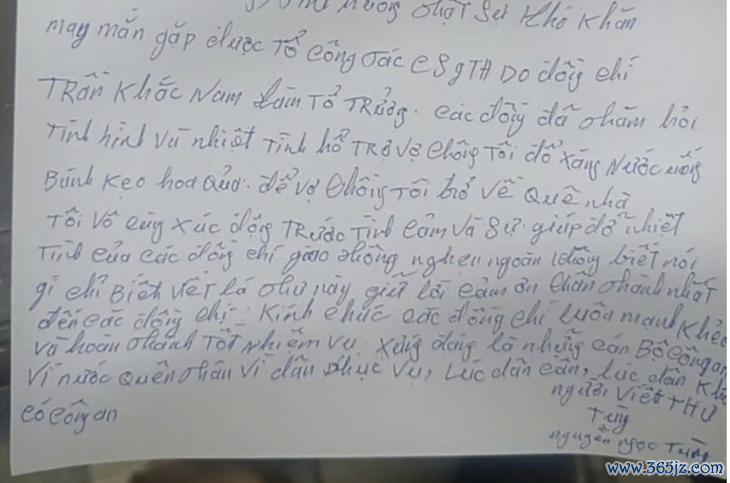 thật sự khó khăn
may mắn gặp được Tổ công tác CSgTH Do đồng chí
TRần Khắc Nam Làm Tổ TRưởng. các đồng đã thăm hỏi
Tình hình và nhiệt Tình hổ TRợ vợ chồng Tôi đổ xăng Nước uống
Bánh Kẹo hoa Quả. để vợ chồng Tôi trở về Quê nhà
Tôi vô cùng xúc động TRước Tình cảm và Sự giúp đỡ nhiệt
Tình của các đồng chí giao thông nghẹn ngoàn không biết nói
gì chỉ Biết viết lá thư này gửi lời cảm ơn chân thành nhất
đến các đồng chí. Kính chúc các đồng chí luôn mạnh Khỏe
và hoàn thành Tốt nhiệm vụ. Xứng đáng là những cán Bộ công an
Vì nước Quên thân Vì dân phục vụ, Lúc dân cần, lúc dân Khó
có công an
người viết THư
Tùng
nguyễn ngọc Tùng
www.365jz.com